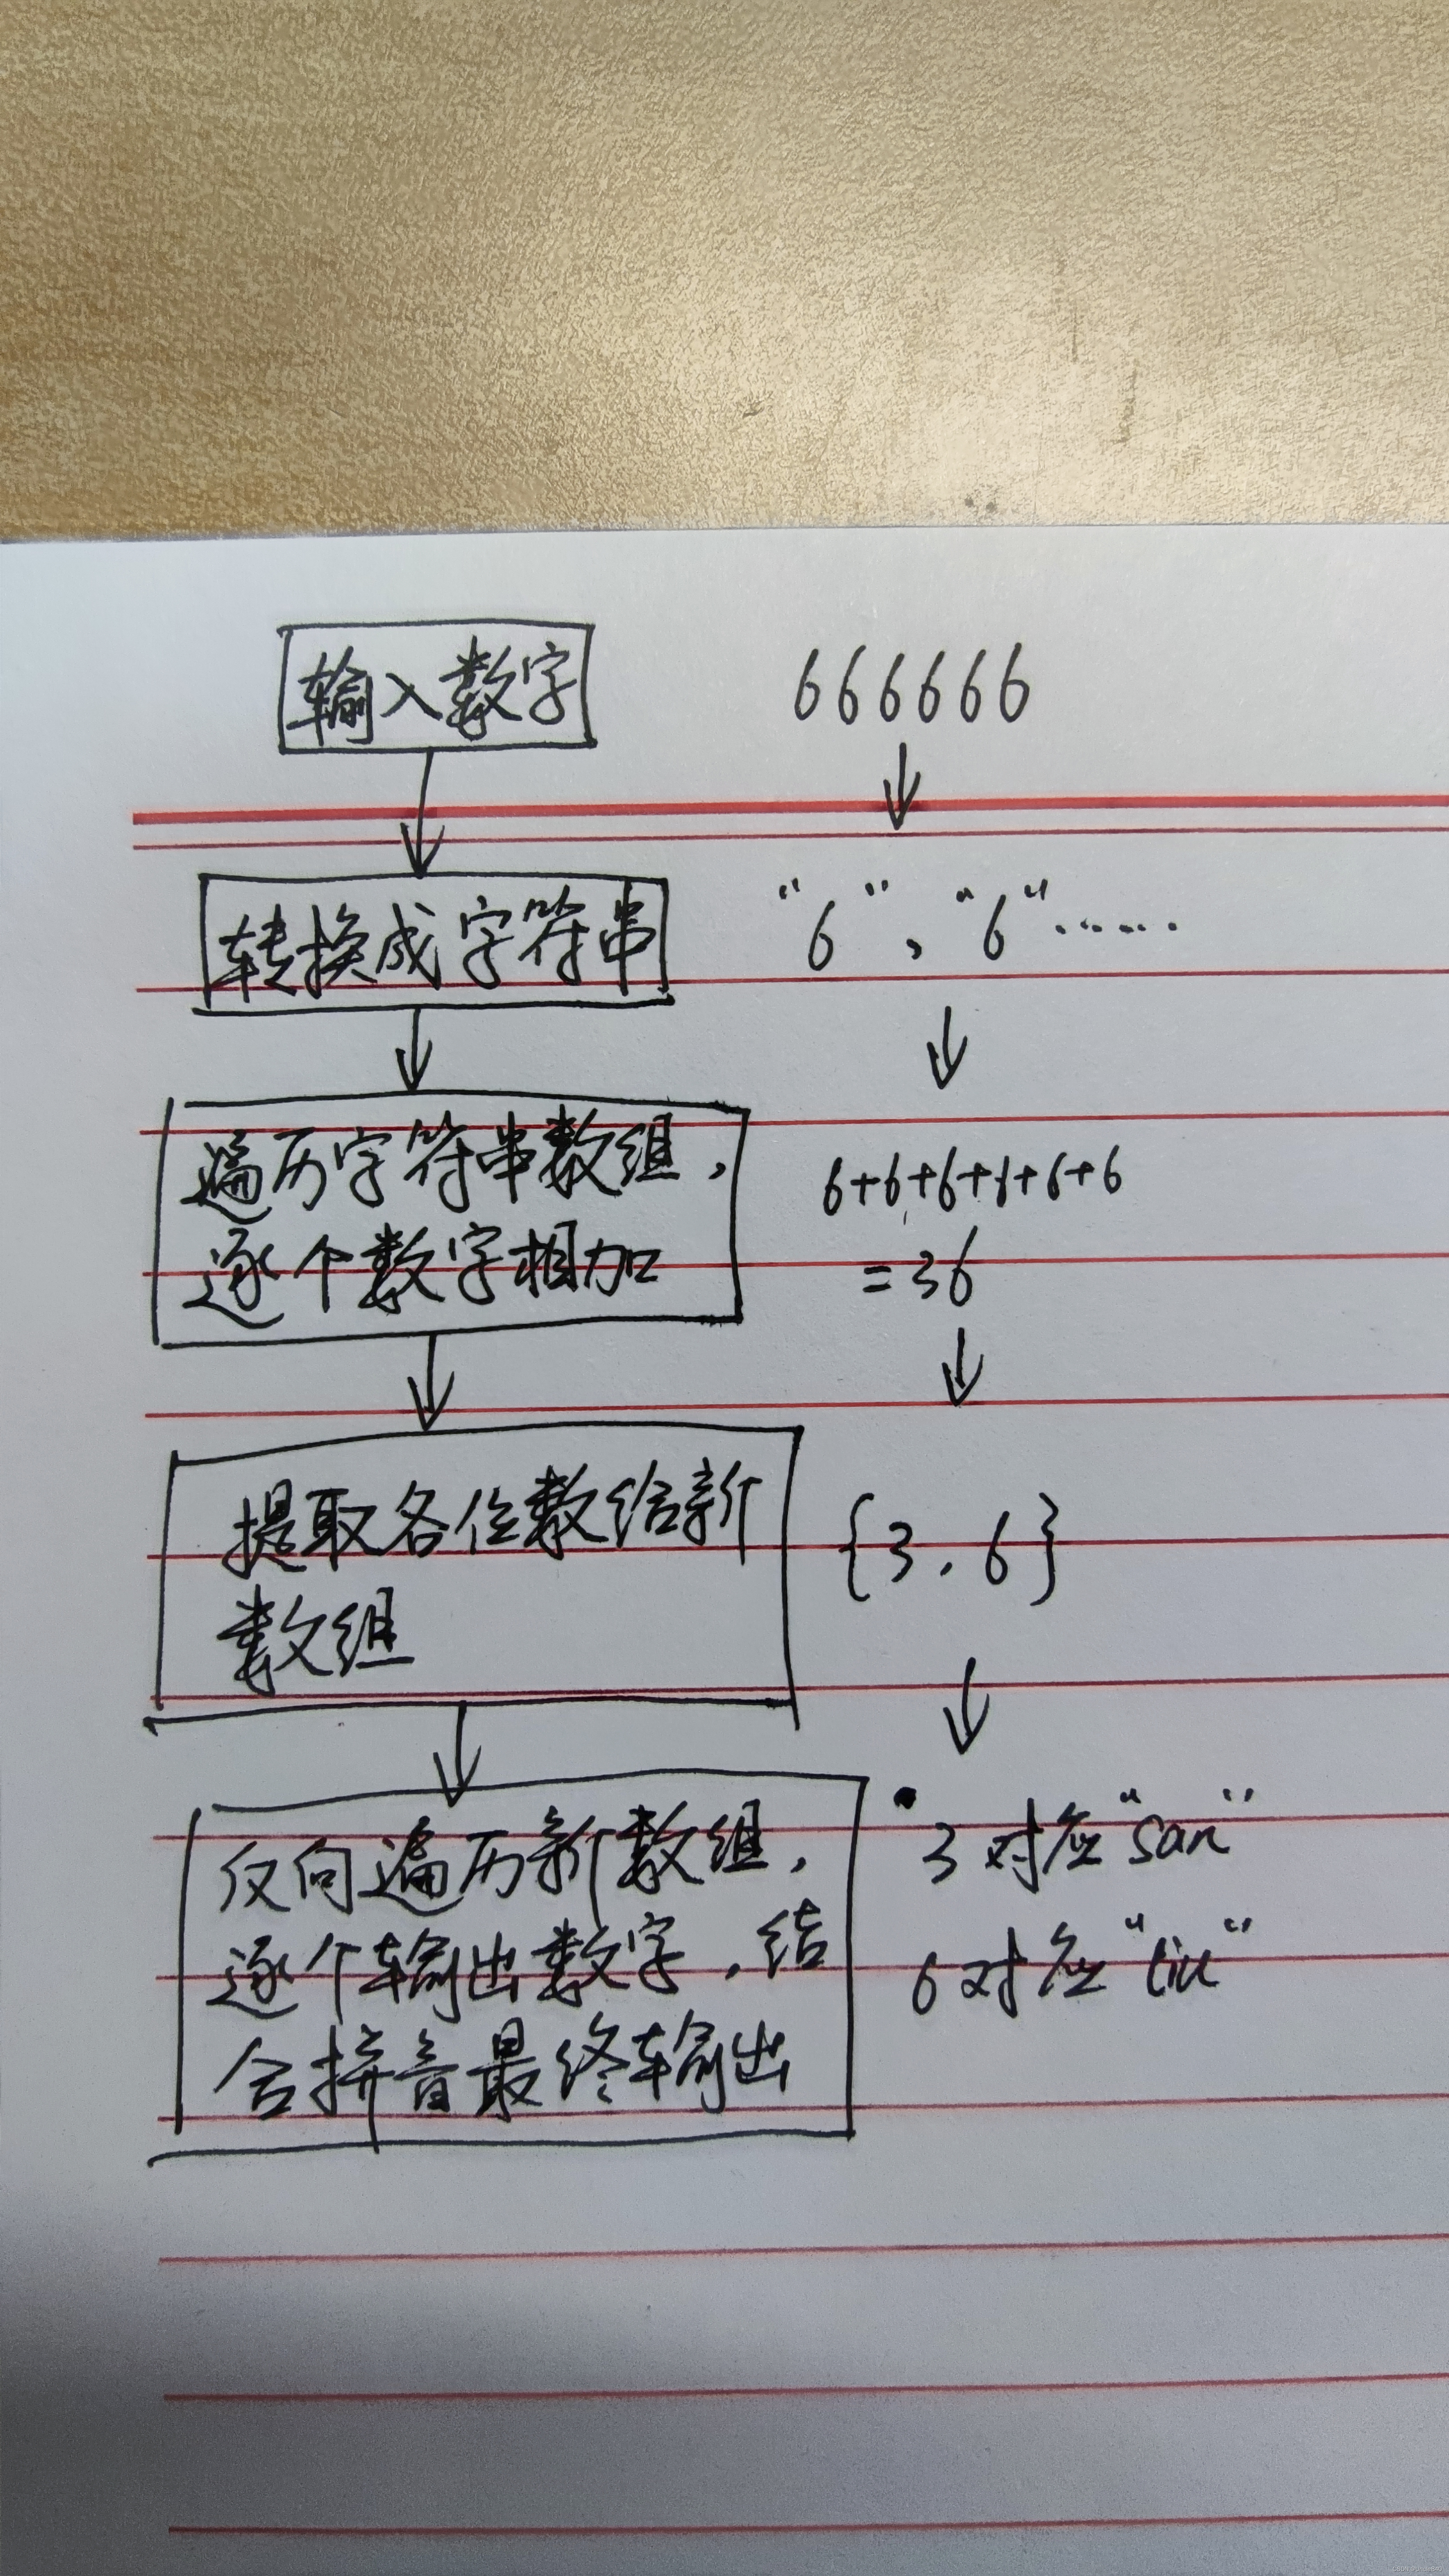 输入数字
666666
转换成字符串
“6”，“6”······
遍历字符串数组，
逐个数字相加
6+6+6+6+6+6
=36
提取各位数给新
数组
{3，6}
反向遍历新数组，
逐个输出数字，结
合拼音最终输出
3对应“san”
6对应“liu”